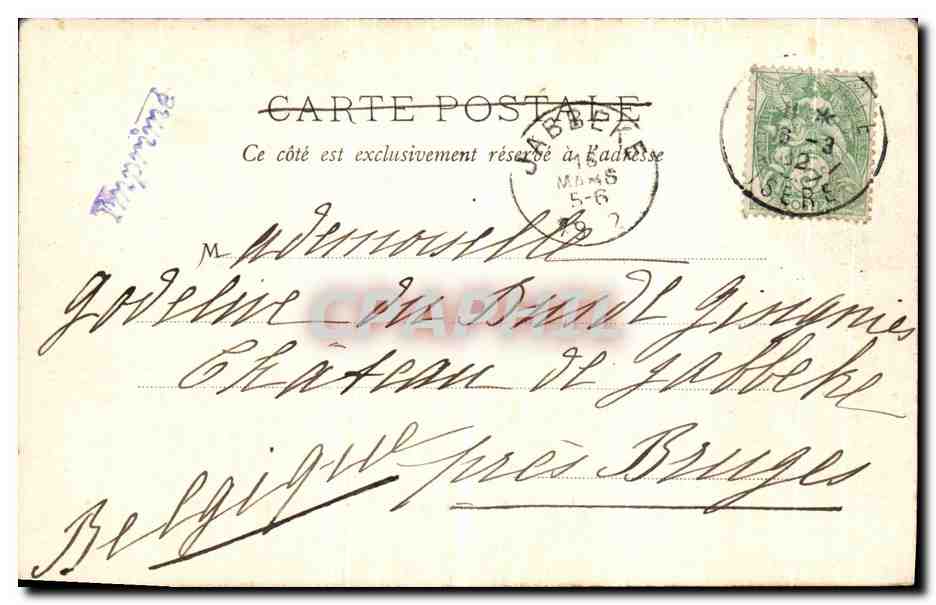 CARTE POSTALE
Ce côté est exclusivement réservé à l'adresse
JABBEKE
15
MARS
5-6
19 2
ISERE
Mademoiselle
Godeline du
Château de Jabbeke
près Bruges
Belgique
CPAPHIL